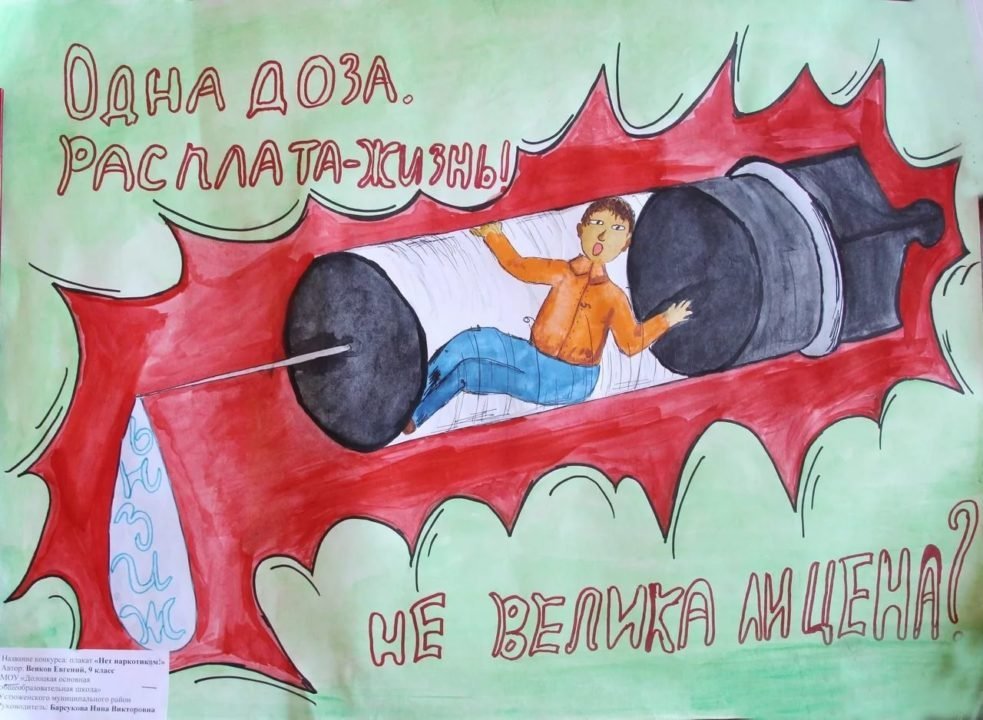 Одна доза.
Расплата-жизнь!
жизнь
Не велика ли цена?
Название конкурса: плакат «Нет наркотикам!»
Автор: Венков Евгений, 9 класс
МОУ «Долоцкая основная
общеобразовательная школа»
Устюженского муниципального район
Руководитель: Барсукова Нина Викторовна